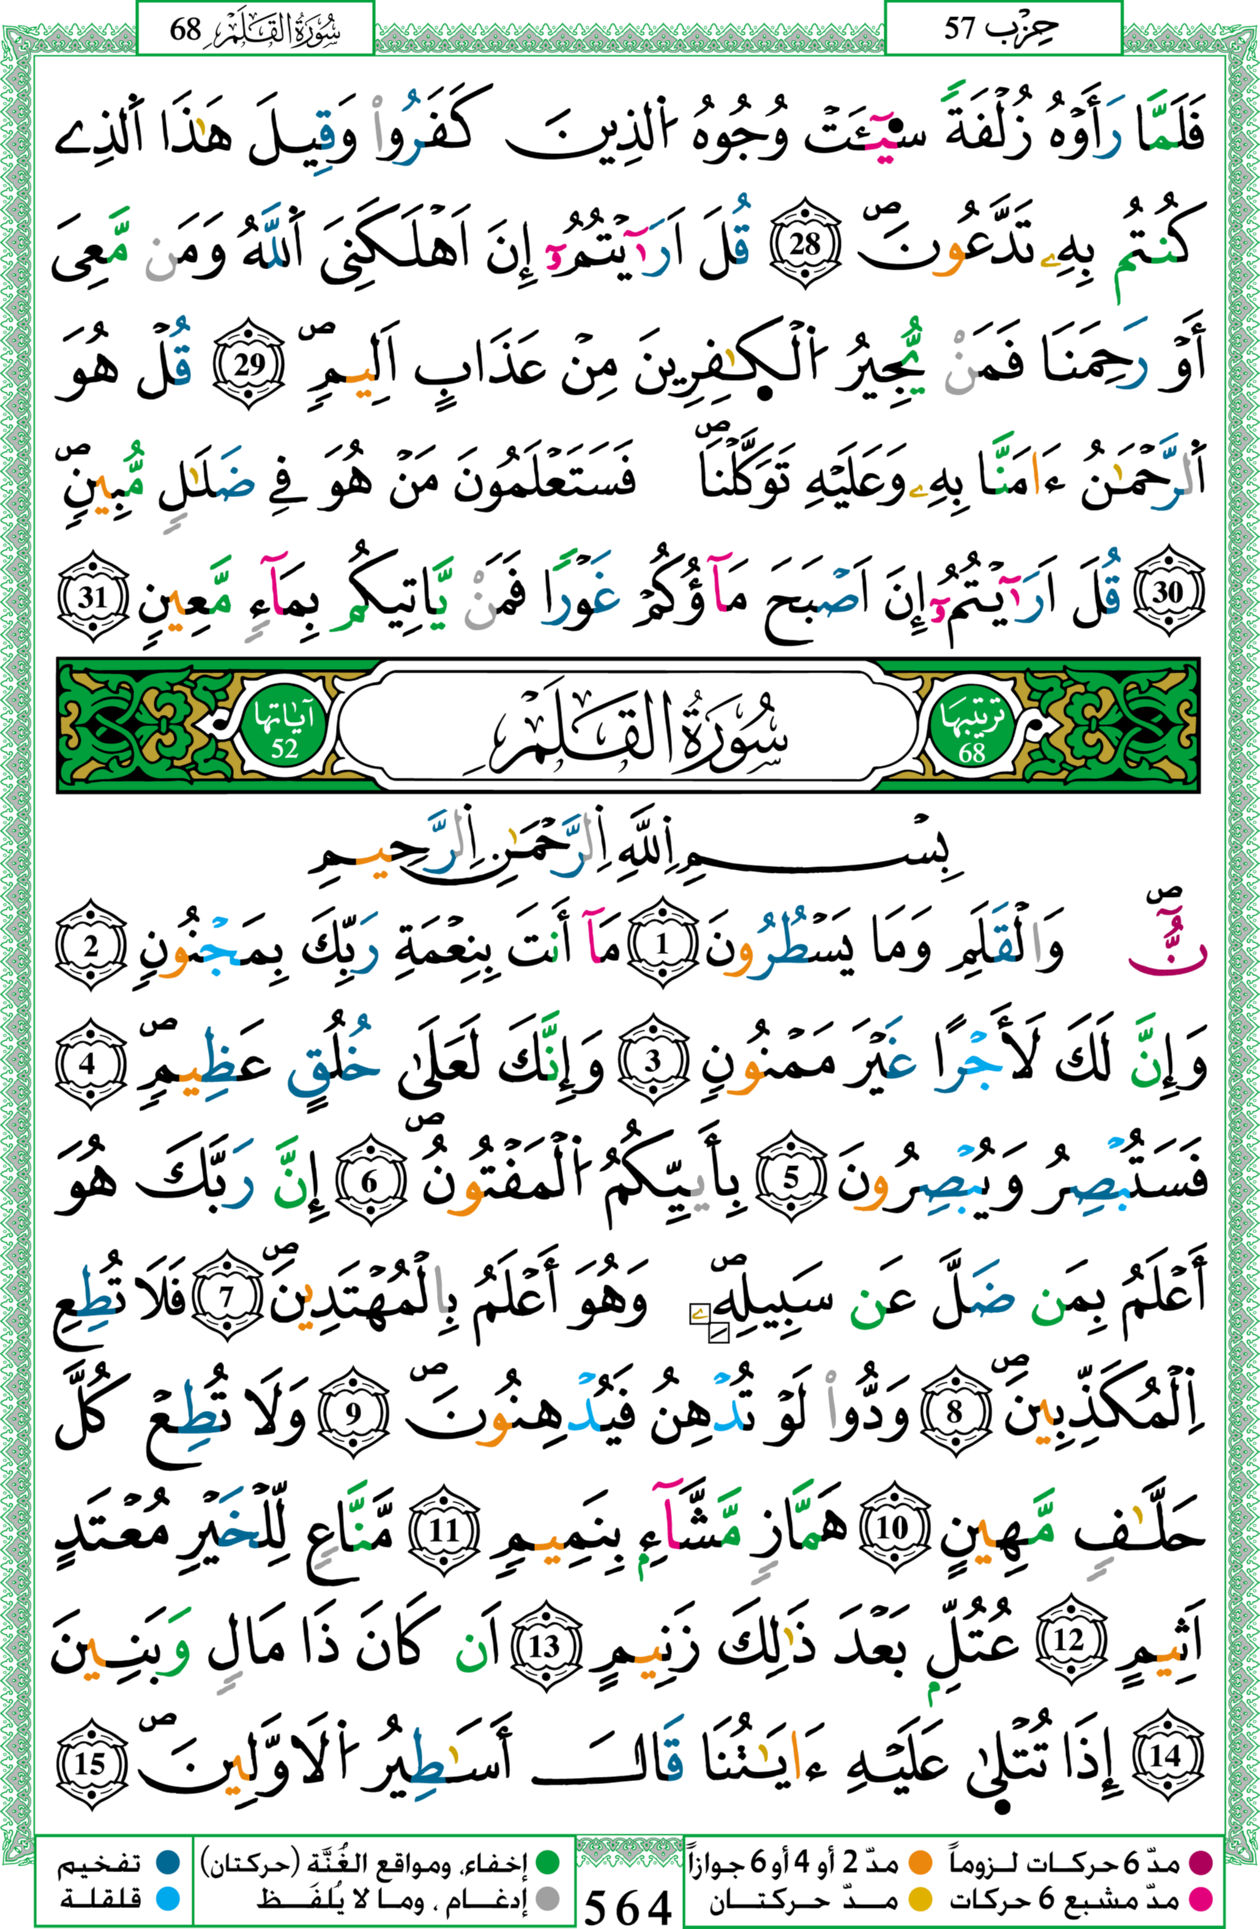 سُورَةُ الْقَلَمِ 68
حِزْب 57
فَلَمَّا رَأَوْهُ زُلْفَةً سِيٓـَٔتْ وُجُوهُ اُ۬لذِينَ كَفَرُواْ وَقِيلَ هَٰذَا اَ۬لذِے
كُنتُم بِهِۦ تَدَّعُونَۖ 28 قُلَ اَرَٰٓيْتُمُۥٓ إِنَ اَهْلَكَنِىَ اَ۬للَّهُ وَمَن مَّعِىَ
أَوْ رَحِمَنَا فَمَنْ يُّجِيرُ اُ۬لْكَٰفِرِينَ مِنْ عَذَابٍ اَلِيمٖۖ 29 قُلْ هُوَ
اَ۬لرَّحْمَٰنُ ءَامَنَّا بِهِۦ وَعَلَيْهِ تَوَكَّلْنَاۖ فَسَتَعْلَمُونَ مَنْ هُوَ فِے ضَلَٰلٖ مُّبِينٖۖ
30 قُلَ اَرَٰٓيْتُمُۥٓ إِنَ اَصْبَحَ مَآؤُكُمْ غَوْراً فَمَنْ يَّاتِيكُم بِمَآءٖ مَّعِينٖ 31
ترتيبها 68
سُورَةُ الْقَلَمِ
آياتها 52
بِسْمِ اِ۬للَّهِ اِ۬لرَّحْمَٰنِ اِ۬لرَّحِيمِ
نُّٓۖ وَالْقَلَمِ وَمَا يَسْطُرُونَ 1 مَآ أَنتَ بِنِعْمَةِ رَبِّكَ بِمَجْنُونٖ 2
وَإِنَّ لَكَ لَأَجْراً غَيْرَ مَمْنُونٖ 3 وَإِنَّكَ لَعَلَىٰ خُلُقٍ عَظِيمٖۖ 4
فَسَتُبْصِرُ وَيُبْصِرُونَ 5 بِأَييِّكُمُ اُ۬لْمَفْتُونُۖ 6 إِنَّ رَبَّكَ هُوَ
أَعْلَمُ بِمَن ضَلَّ عَن سَبِيلِهِۦۖ وَهُوَ أَعْلَمُ بِالْمُهْتَدِينَۖ 7 فَلَا تُطِعِ
اِ۬لْمُكَذِّبِينَۖ 8 وَدُّواْ لَوْ تُدْهِنُ فَيُدْهِنُونَۖ 9 وَلَا تُطِعْ كُلَّ
حَلَّٰفٖ مَّهِينٍ 10 هَمَّازٖ مَّشَّآءِۢ بِنَمِيمٖ 11 مَّنَّاعٖ لِّلْخَيْرِ مُعْتَدٍ
اَثِيمٍ 12 عُتُلِّۢ بَعْدَ ذَٰلِكَ زَنِيمٍ 13 اَن كَانَ ذَا مَالٖ وَبَنِينَ
14 إِذَا تُتْلَىٰ عَلَيْهِ ءَايَٰتُنَا قَالَ أَسَٰطِيرُ اُ۬لَاوَّلِينَۖ 15
مدّ 6 حركات لـزوماً
مدّ 2 أو 4 أو 6 جوازاً
إخفاء، ومواقع الغُنَّة (حركتان)
تفخيم
مدّ مشبع 6 حركات
مدّ حركتـان
إدغـام ، ومـا لا يُلفَـظ
قلقلة
564